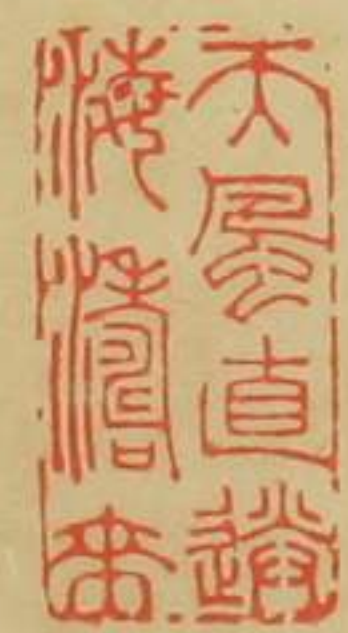 天風直送
海濤來